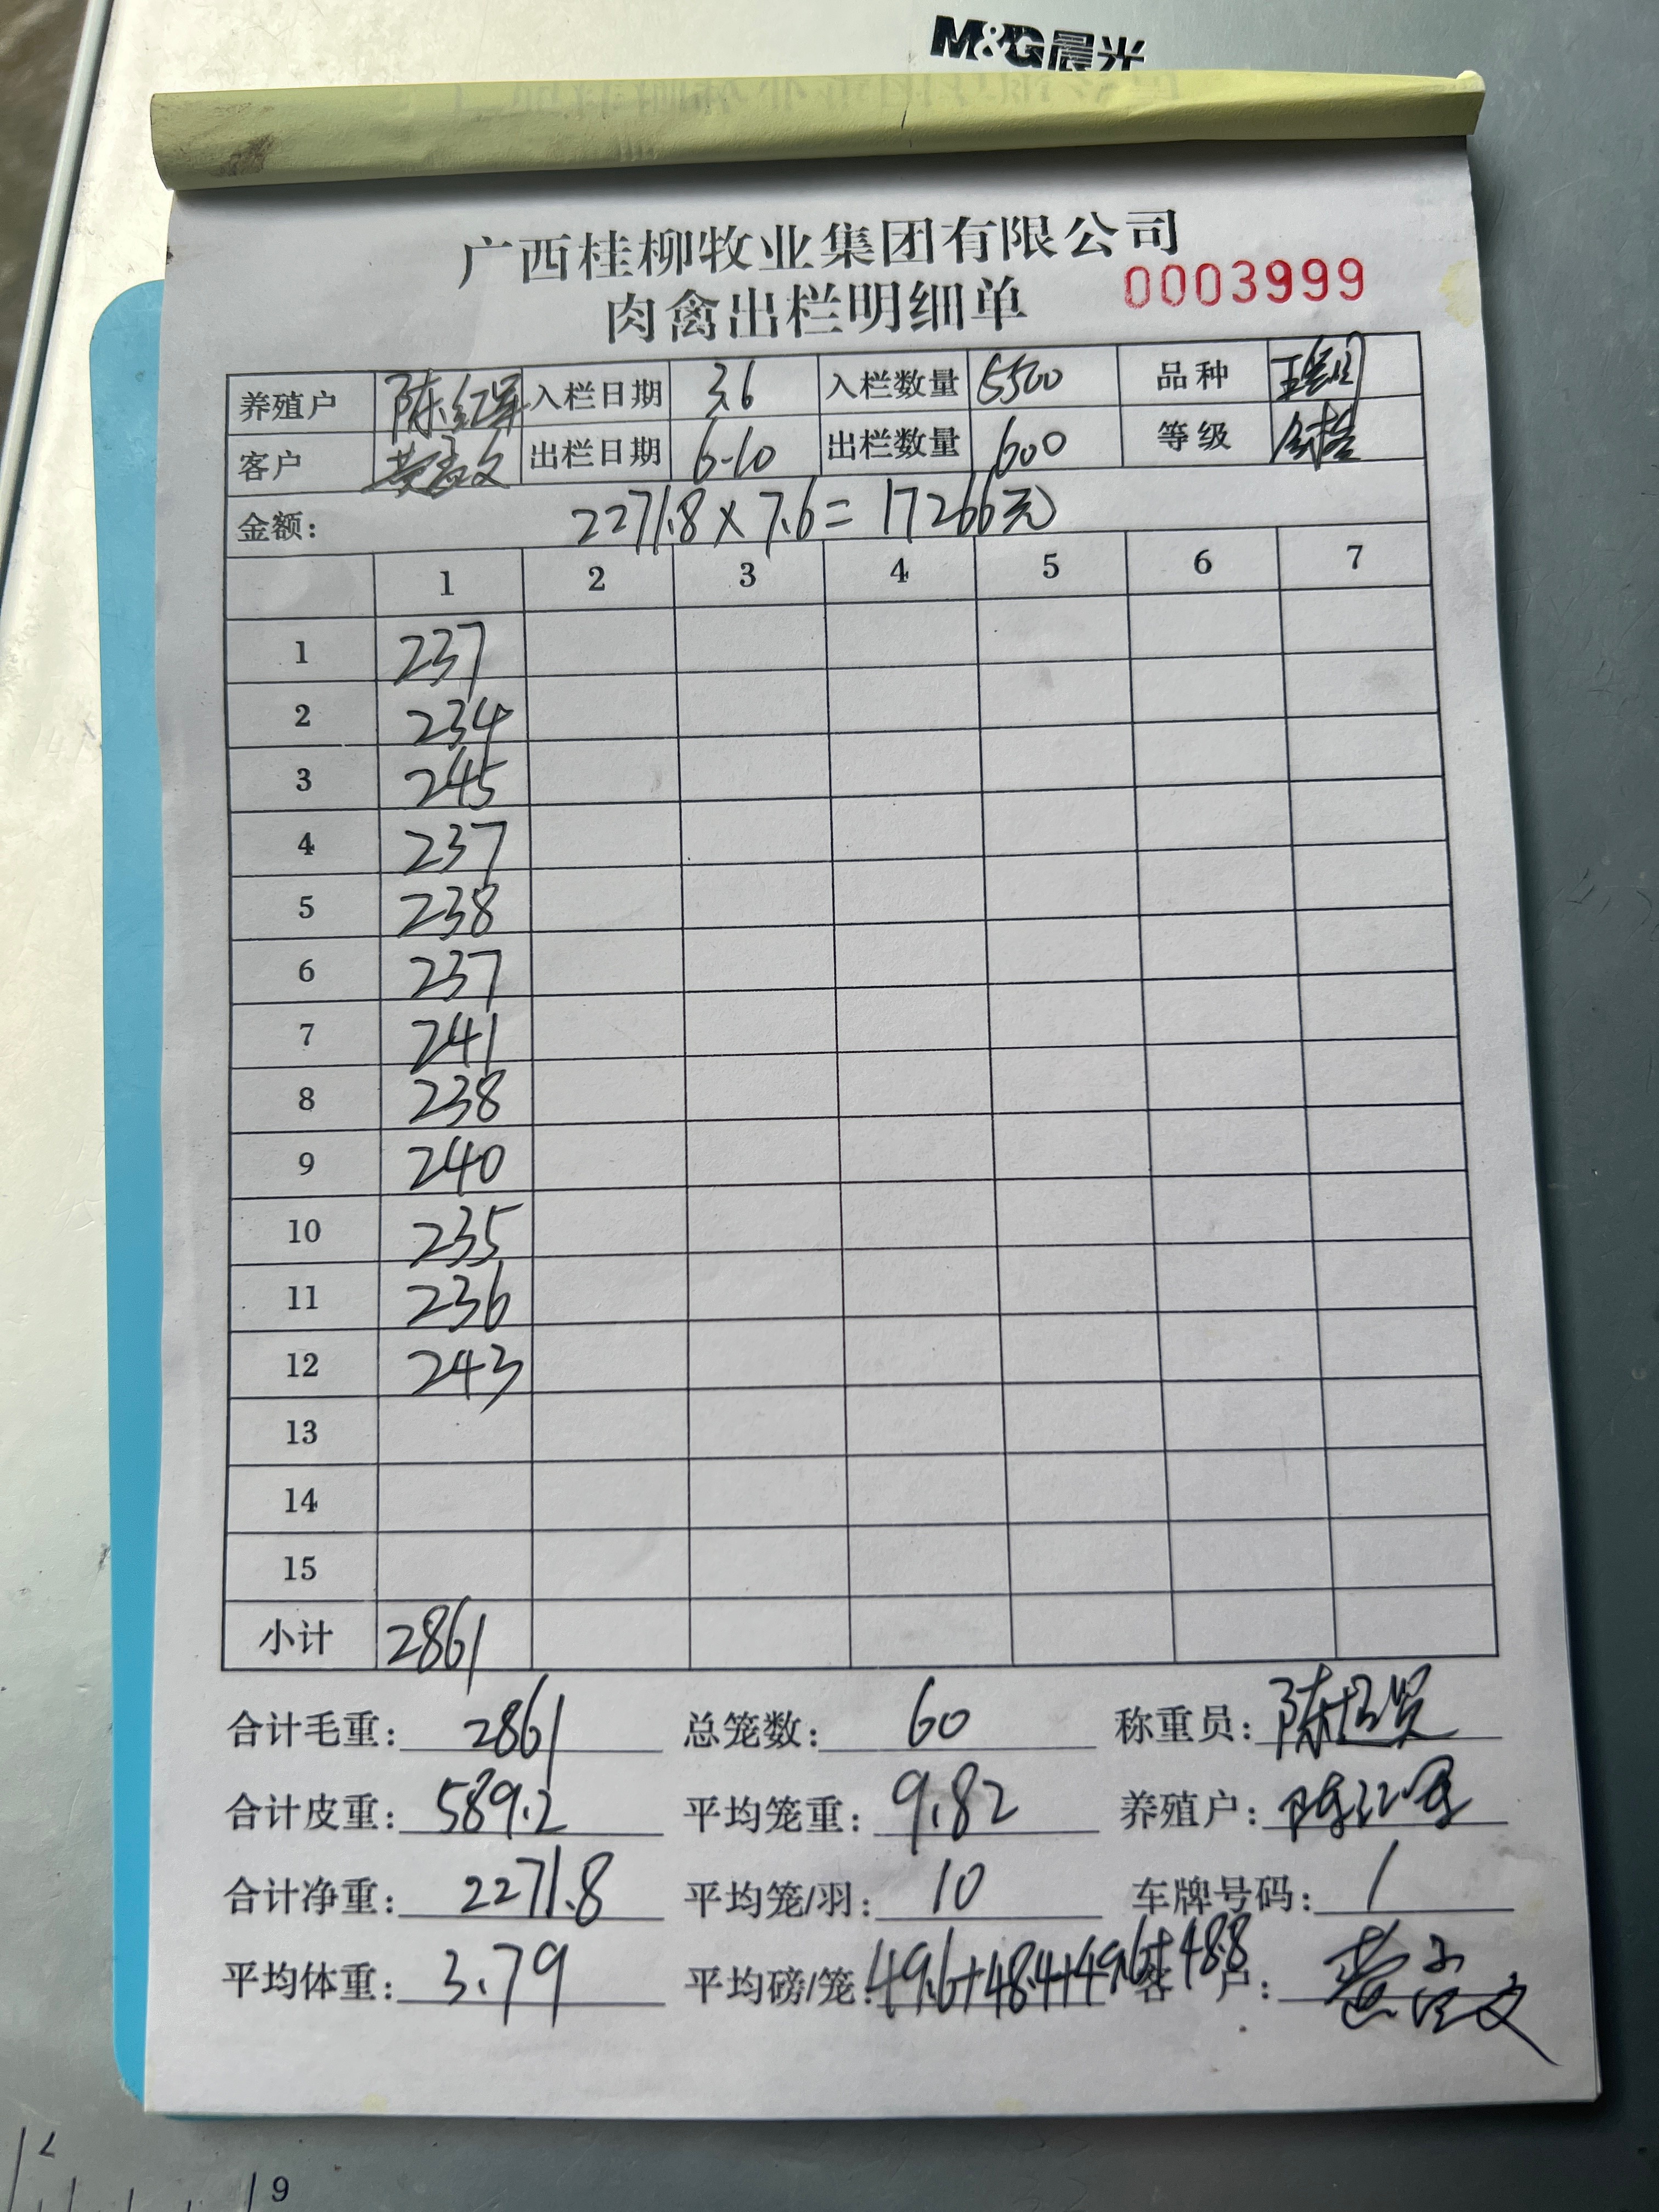 M&G晨光
广西桂柳牧业集团有限公司
肉禽出栏明细单 0003999
养殖户 陈红军 入栏日期 3.6 入栏数量 5500 品种
客户 黄孟文 出栏日期 6-10 出栏数量 600 等级
金额: 2271.8×7.6=17266元
1 2 3 4 5 6 7
1 237
2 234
3 245
4 237
5 238
6 237
7 241
8 238
9 240
10 235
11 236
12 243
13
14
15
小计 2861
合计毛重: 2861 总笼数: 60 称重员:
合计皮重: 589.2 平均笼重: 9.82 养殖户: 陈红军
合计净重: 2271.8 平均笼/羽: 10 车牌号码: 1
平均体重: 3.79 平均磅/笼: 49.6+48.4+49.6+48.8 客户: 黄孟文
9